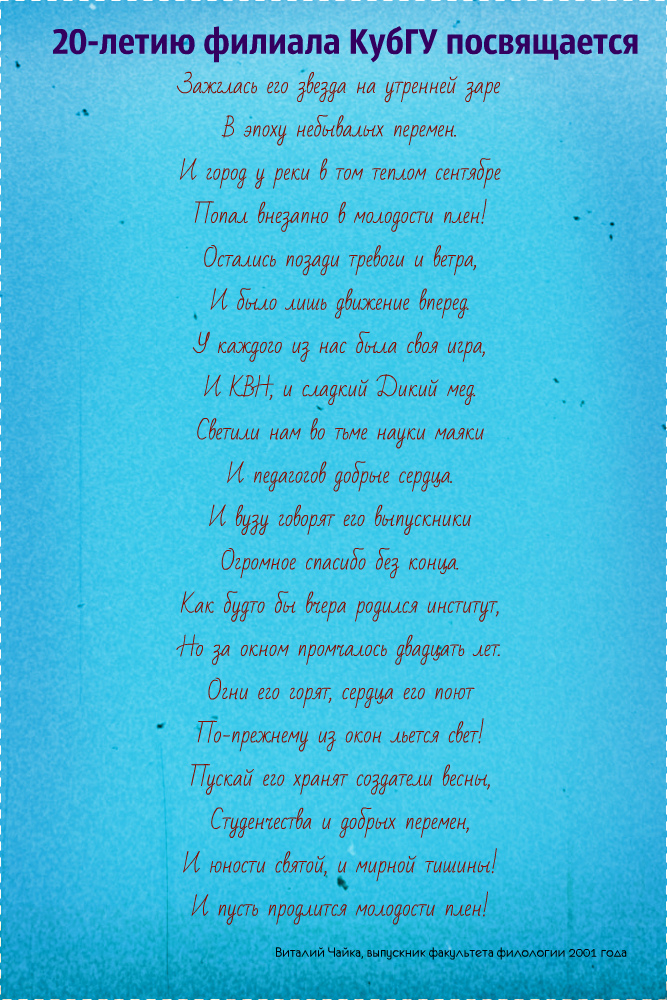 20-летию филиала КубГУ посвящается
Зажглась его звезда на утренней заре
В эпоху небывалых перемен.
И город у реки в том теплом сентябре
Попал внезапно в молодости плен!
Остались позади тревоги и ветра,
И было лишь движение вперед.
У каждого из нас была своя игра,
И КВН, и сладкий Дикий мед.
Светили нам во тьме науки маяки
И педагогов добрые сердца.
И вузу говорят его выпускники
Огромное спасибо без конца.
Как будто бы вчера родился институт,
Но за окном промчалось двадцать лет.
Огни его горят, сердца его поют
По-прежнему из окон льется свет!
Пускай его хранят создатели весны,
Студенчества и добрых перемен,
И юности святой, и мирной тишины!
И пусть продлится молодости плен!
Виталий Чайка, выпускник факультета филологии 2001 года